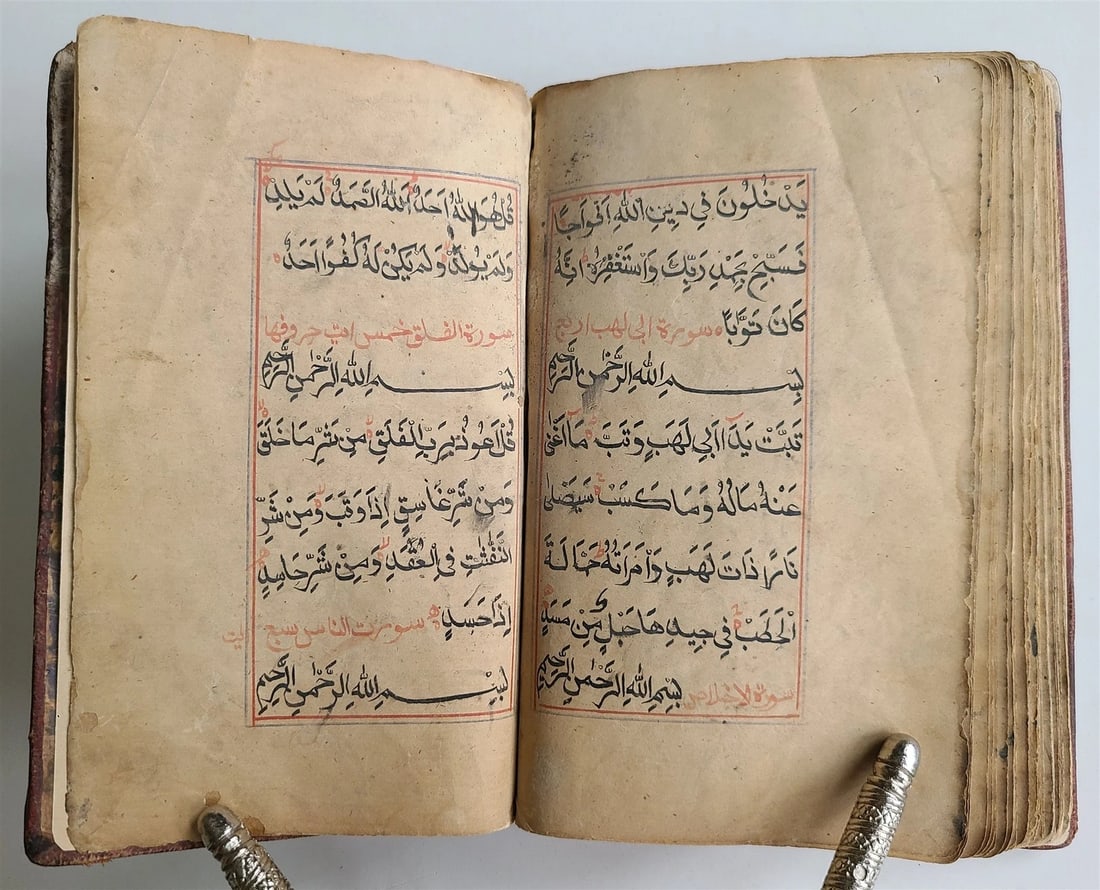 يَدْخُلُونَ فِي دِينِ اللَّهِ اَفْوَاجًا
فَسَبِّحْ بِحَمْدِ رَبِّكَ وَاسْتَغْفِرْهُ اِنَّهُ
كَانَ تَوَّابًا سورة ابى لهب اربع
بِسْمِ اللَّهِ الرَّحْمٰنِ الرَّحِيمِ
تَبَّتْ يَدَآ اَبِي لَهَبٍ وَتَبَّ مَآ اَغْنٰى
عَنْهُ مَالُهُ وَمَا كَسَبَ سَيَصْلٰى
نَارًا ذَاتَ لَهَبٍ وَامْرَاَتُهُ حَمَّا لَةَ
الْحَطَبِ فِي جِيدِهَا حَبْلٌ مِنْ مَسَدٍ
سورة الاخلاص بِسْمِ اللَّهِ الرَّحْمٰنِ الرَّحِيمِ
قُلْ هُوَ اللَّهُ اَحَدٌ اَللَّهُ الصَّمَدُ لَمْ يَلِدْ
وَلَمْ يُولَدْ وَلَمْ يَكُنْ لَهُ كُفُوًا اَحَدٌ
سورة الفلق خمس ايت حروفها
بِسْمِ اللَّهِ الرَّحْمٰنِ الرَّحِيمِ
قُلْ اَعُوذُ بِرَبِّ الْفَلَقِ مِنْ شَرِّ مَا خَلَقَ
وَمِنْ شَرِّ غَاسِقٍ اِذَا وَقَبَ وَمِنْ شَرِّ
النَّفّٰثٰتِ فِي الْعُقَدِ وَمِنْ شَرِّ حَاسِدٍ
اِذَا حَسَدَ سورت الناس سبع ايت
بِسْمِ اللَّهِ الرَّحْمٰنِ الرَّحِيمِ